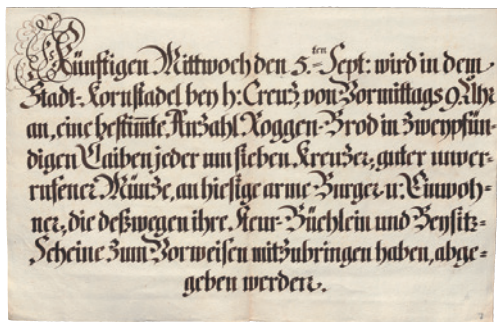 Künftigen Mittwoch den 5.ten Sept: wird in dem
Stadt-Kornstadel bey h: Creuz, von Vormittags 9. Uhr
an, eine bestim̅te Anzahl Roggen-Brod in zweypfün-
digen Laiben jeder um sieben Kreuzer, guter unver-
rufener Münze, an hiesige arme Burger u: Einwoh-
ner, die deßwegen ihre Keur-Büchlein und Beysitz-
Scheine zum Vorweisen mitzubringen haben, abge-
geben werden.